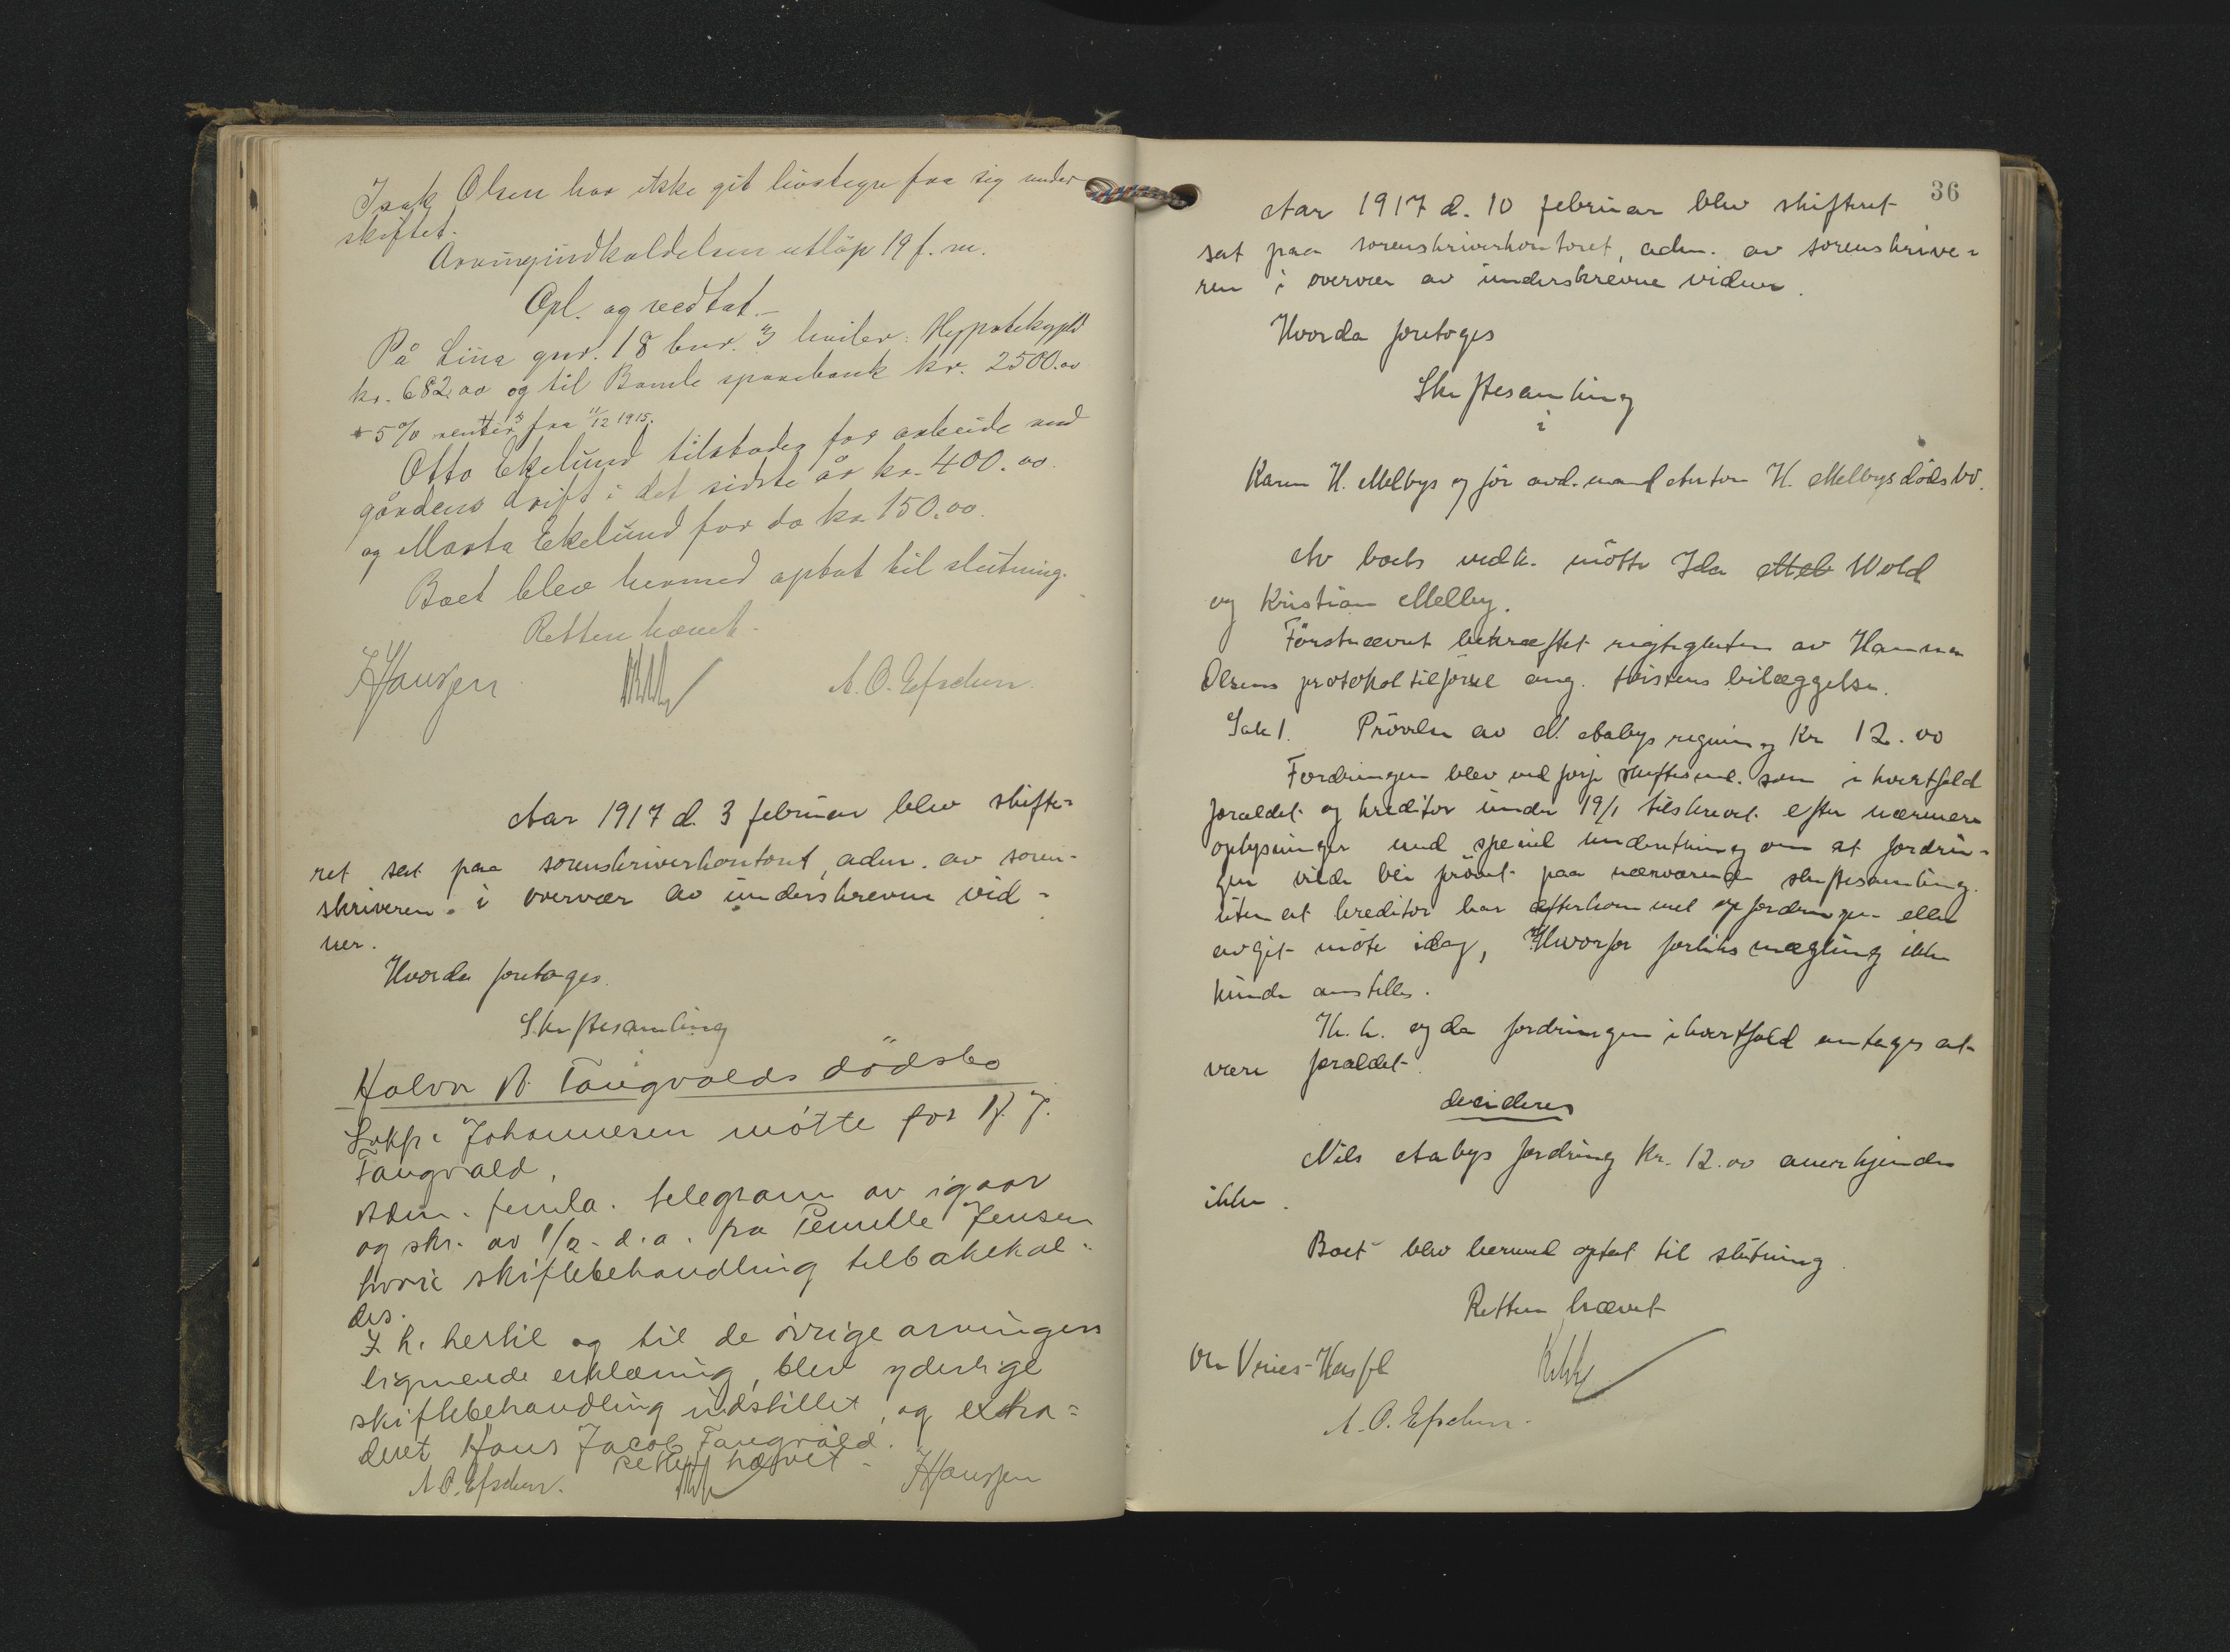 Isak Olsen har ikke git livstegn fra sig under
skiftet.
Arvingindkaldelsen utløp 19 f. m.
Opl. og vedtat.-
På Lina gnr. 18 bnr. 3 hviler: Hypotekgjæld
kr. 682,00 og til Bamle sparebank kr. 2500.00
+ 5% renter fra 11/12 1915.
Otto Ekelund tilstodes for arbeide med
gårdens drift i det sidste år kr. 400.00.
og Marta Ekelund for do kr. 150.00.
Boet blev hermed optat til slutning.
Retten hævet.
J Hansen A. O. Efschen.
Aar 1917 d. 3 februar blev skifte=
ret sat paa sorenskriverkontoret, adm. av soren-
skriveren. i overvær av underskrevne vid=
ner.
Hvorda foretoges.
Skiftesamling
i
Halvor A. Tangvalds dødsbo
Sakf. Johannesen møtte for H. J.
Tangvald.
Adm. feml. telegram av igaar
og skr. av 1/2 d. a. fra Pernille Jensen
hvori skiftebehandling tilbakekal-
des.
I h. hertil og til de øvrige arvingers
lignende erklæring, blev yderlige
skiftebehandling indstillet, og extra=
deret Hans Jacob Tangvald.
Retten hævet.
A O. Efschen. J Hansen
36
Aar 1917 d. 10 februar blev skifteret
sat paa sorenskriverkontoret, adm. av sorenskrive=
ren i overvær av underskrevne vidner.
Hvorda foretoges
Skiftesamling
i
Karen H. Melbys og før avd. mand Anton H. Melbys dødsbo.
Av boets vedk. møtte Ida Mel Wold
og Kristian Melby.
Førstnævnt bekræftet rigtigheten av Hanna
Olsens protokoltilførsel ang. tvistens bilæggelse.
Sak 1. Prøvelse av N. Aabys regning Kr 12.00
Fordringen blev ved forr. skiftesaml. som i hvertfald
foraldet og kreditor under 19/1 tilskrevet efter nærmere
oplysninger med speciel underretning om at fordrin=
gen vilde bli prøvet paa nærværende skiftesamling.
uten at kreditor har efterkommet opfordringen eller
avgit møte idag, Hvorfor forliksmægling ikke
kunde anstilles.
Th. h. og da fordringen ihvertfald antages at
være foraldet.
decideres
Nils Aabys fordring Kr. 12.00 anerkjendes
ikke.
Boet blev hermed optat til slutning.
Retten hævet
A. O. Efschen.